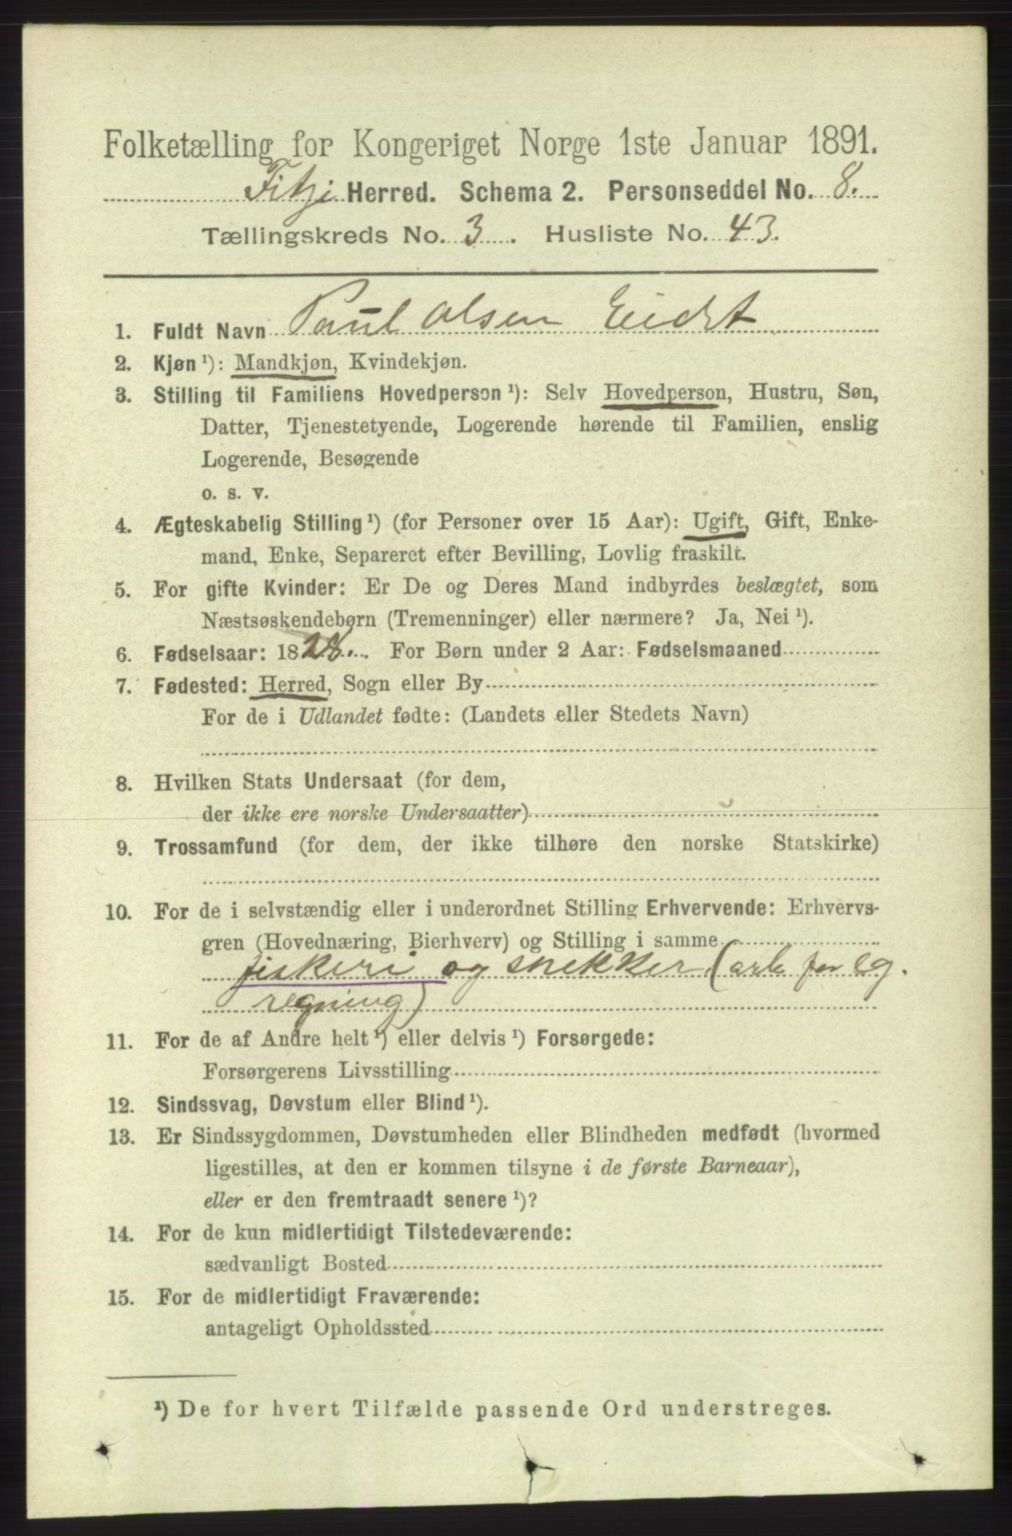 Folketælling for Kongeriget Norge 1ste Januar 1891.
Fitje Herred. Schema 2. Personseddel No. 8.
Tællingskreds No. 3. Husliste No. 43.
1. Fuldt Navn Paul Olsen Eidet
2. Kjøn ¹): Mandkjøn, Kvindekjøn.
3. Stilling til Familiens Hovedperson ¹): Selv Hovedperson, Hustru, Søn,
Datter, Tjenestetyende, Logerende hørende til Familien, enslig
Logerende, Besøgende
o. s. v.
4. Ægteskabelig Stilling ¹) (for Personer over 15 Aar): Ugift, Gift, Enke-
mand, Enke, Separeret efter Bevilling, Lovlig fraskilt.
5. For gifte Kvinder: Er De og Deres Mand indbyrdes beslægtet, som
Næstsøskendebørn (Tremenninger) eller nærmere? Ja, Nei ¹).
6. Fødselsaar: 1828. For Børn under 2 Aar: Fødselsmaaned
7. Fødested: Herred, Sogn eller By
For de i Udlandet fødte: (Landets eller Stedets Navn)
8. Hvilken Stats Undersaat (for dem,
der ikke ere norske Undersaatter)
9. Trossamfund (for dem, der ikke tilhøre den norske Statskirke)
10. For de i selvstændig eller i underordnet Stilling Erhvervende: Erhvervs-
gren (Hovednæring, Bierhverv) og Stilling i samme
fiskeri og snekker (arb for eg.
regning)
11. For de af Andre helt ¹) eller delvis ¹) Forsørgede:
Forsørgerens Livsstilling
12. Sindssvag, Døvstum eller Blind ¹).
13. Er Sindssygdommen, Døvstumheden eller Blindheden medfødt (hvormed
ligestilles, at den er kommen tilsyne i de første Barneaar),
eller er den fremtraadt senere ¹)?
14. For de kun midlertidigt Tilstedeværende:
sædvanligt Bosted
15. For de midlertidigt Fraværende:
antageligt Opholdssted
¹) De for hvert Tilfælde passende Ord understreges.